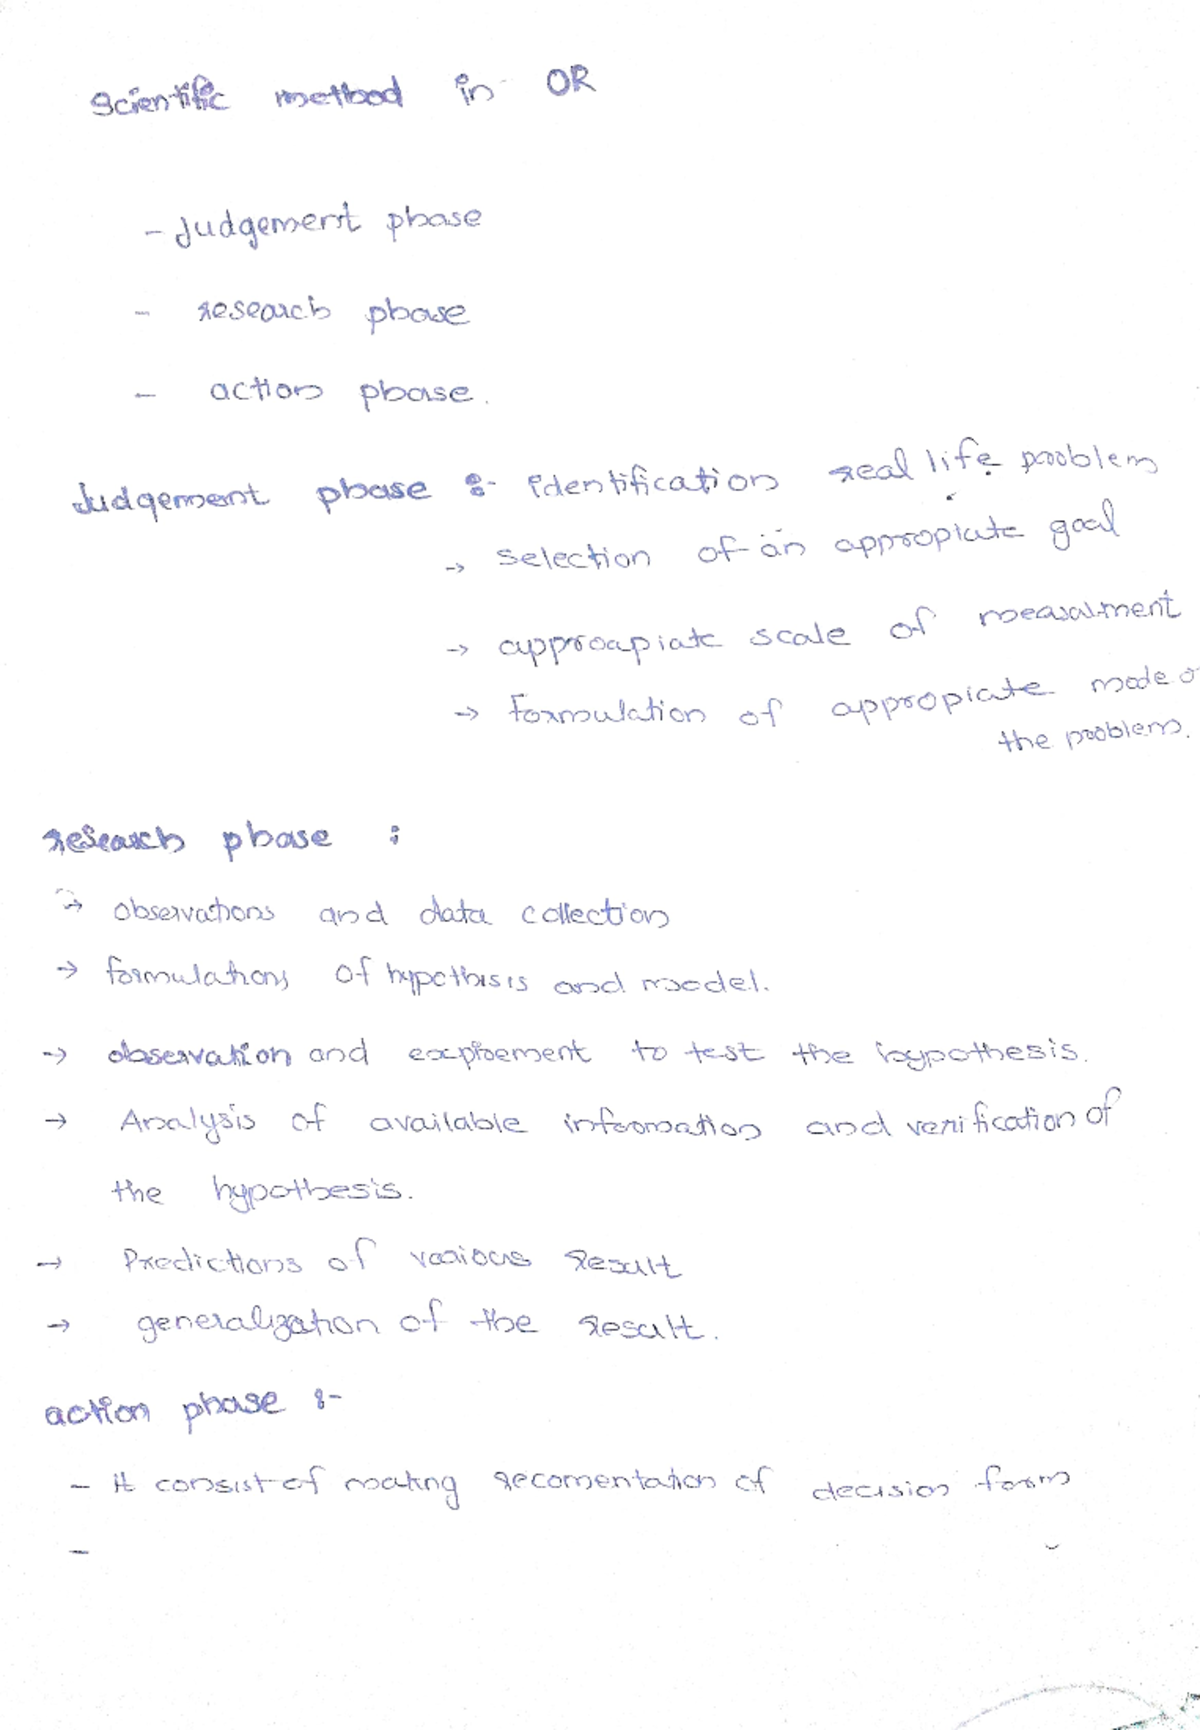 Scientific method in OR
- Judgement phase
- research phase
- action phase.
Judgement phase :- identification real life problem
→ selection of an appropiate goal
→ approapiate scale of measurment
→ Formulation of appropiate mode o
the problem.
research phase :
→ observations and data collection
→ formulations of hypothisis and model.
→ observation and expirement to test the hypothesis.
→ Analysis of available information and verification of
the hypothesis.
→ Predictions of various result
→ generalization of the result.
action phase :-
- it consist of making recomentation of decision form
-